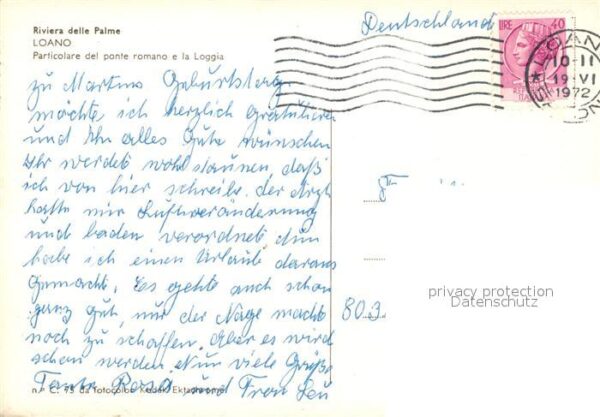 Riviera delle Palme
LOANO
Particolare del ponte romano e la Loggia
Deutschland
LIRE 40
LOANO
10-11
19-VI
1972
zu Martins Geburtstag
möchte ich herzlich gratulieren
und Ihn alles Gute wünschen
Ihr werdet wohl staunen, daß
ich von hier schreibe. Der Arzt
hatte mir Luftveränderung
und baden verordnet. Nun
habe ich einen Urlaub daraus
gemacht. Es gehte auch schon
ganz gut, nur der Nage macht
noch zu schaffen. Aber es wird
schon werden. Nun viele Grüße
Tante Rosa und Frau Leu
803
privacy protection
Datenschutz
n° C. 75 da fotocolor Kodak Ektachrome